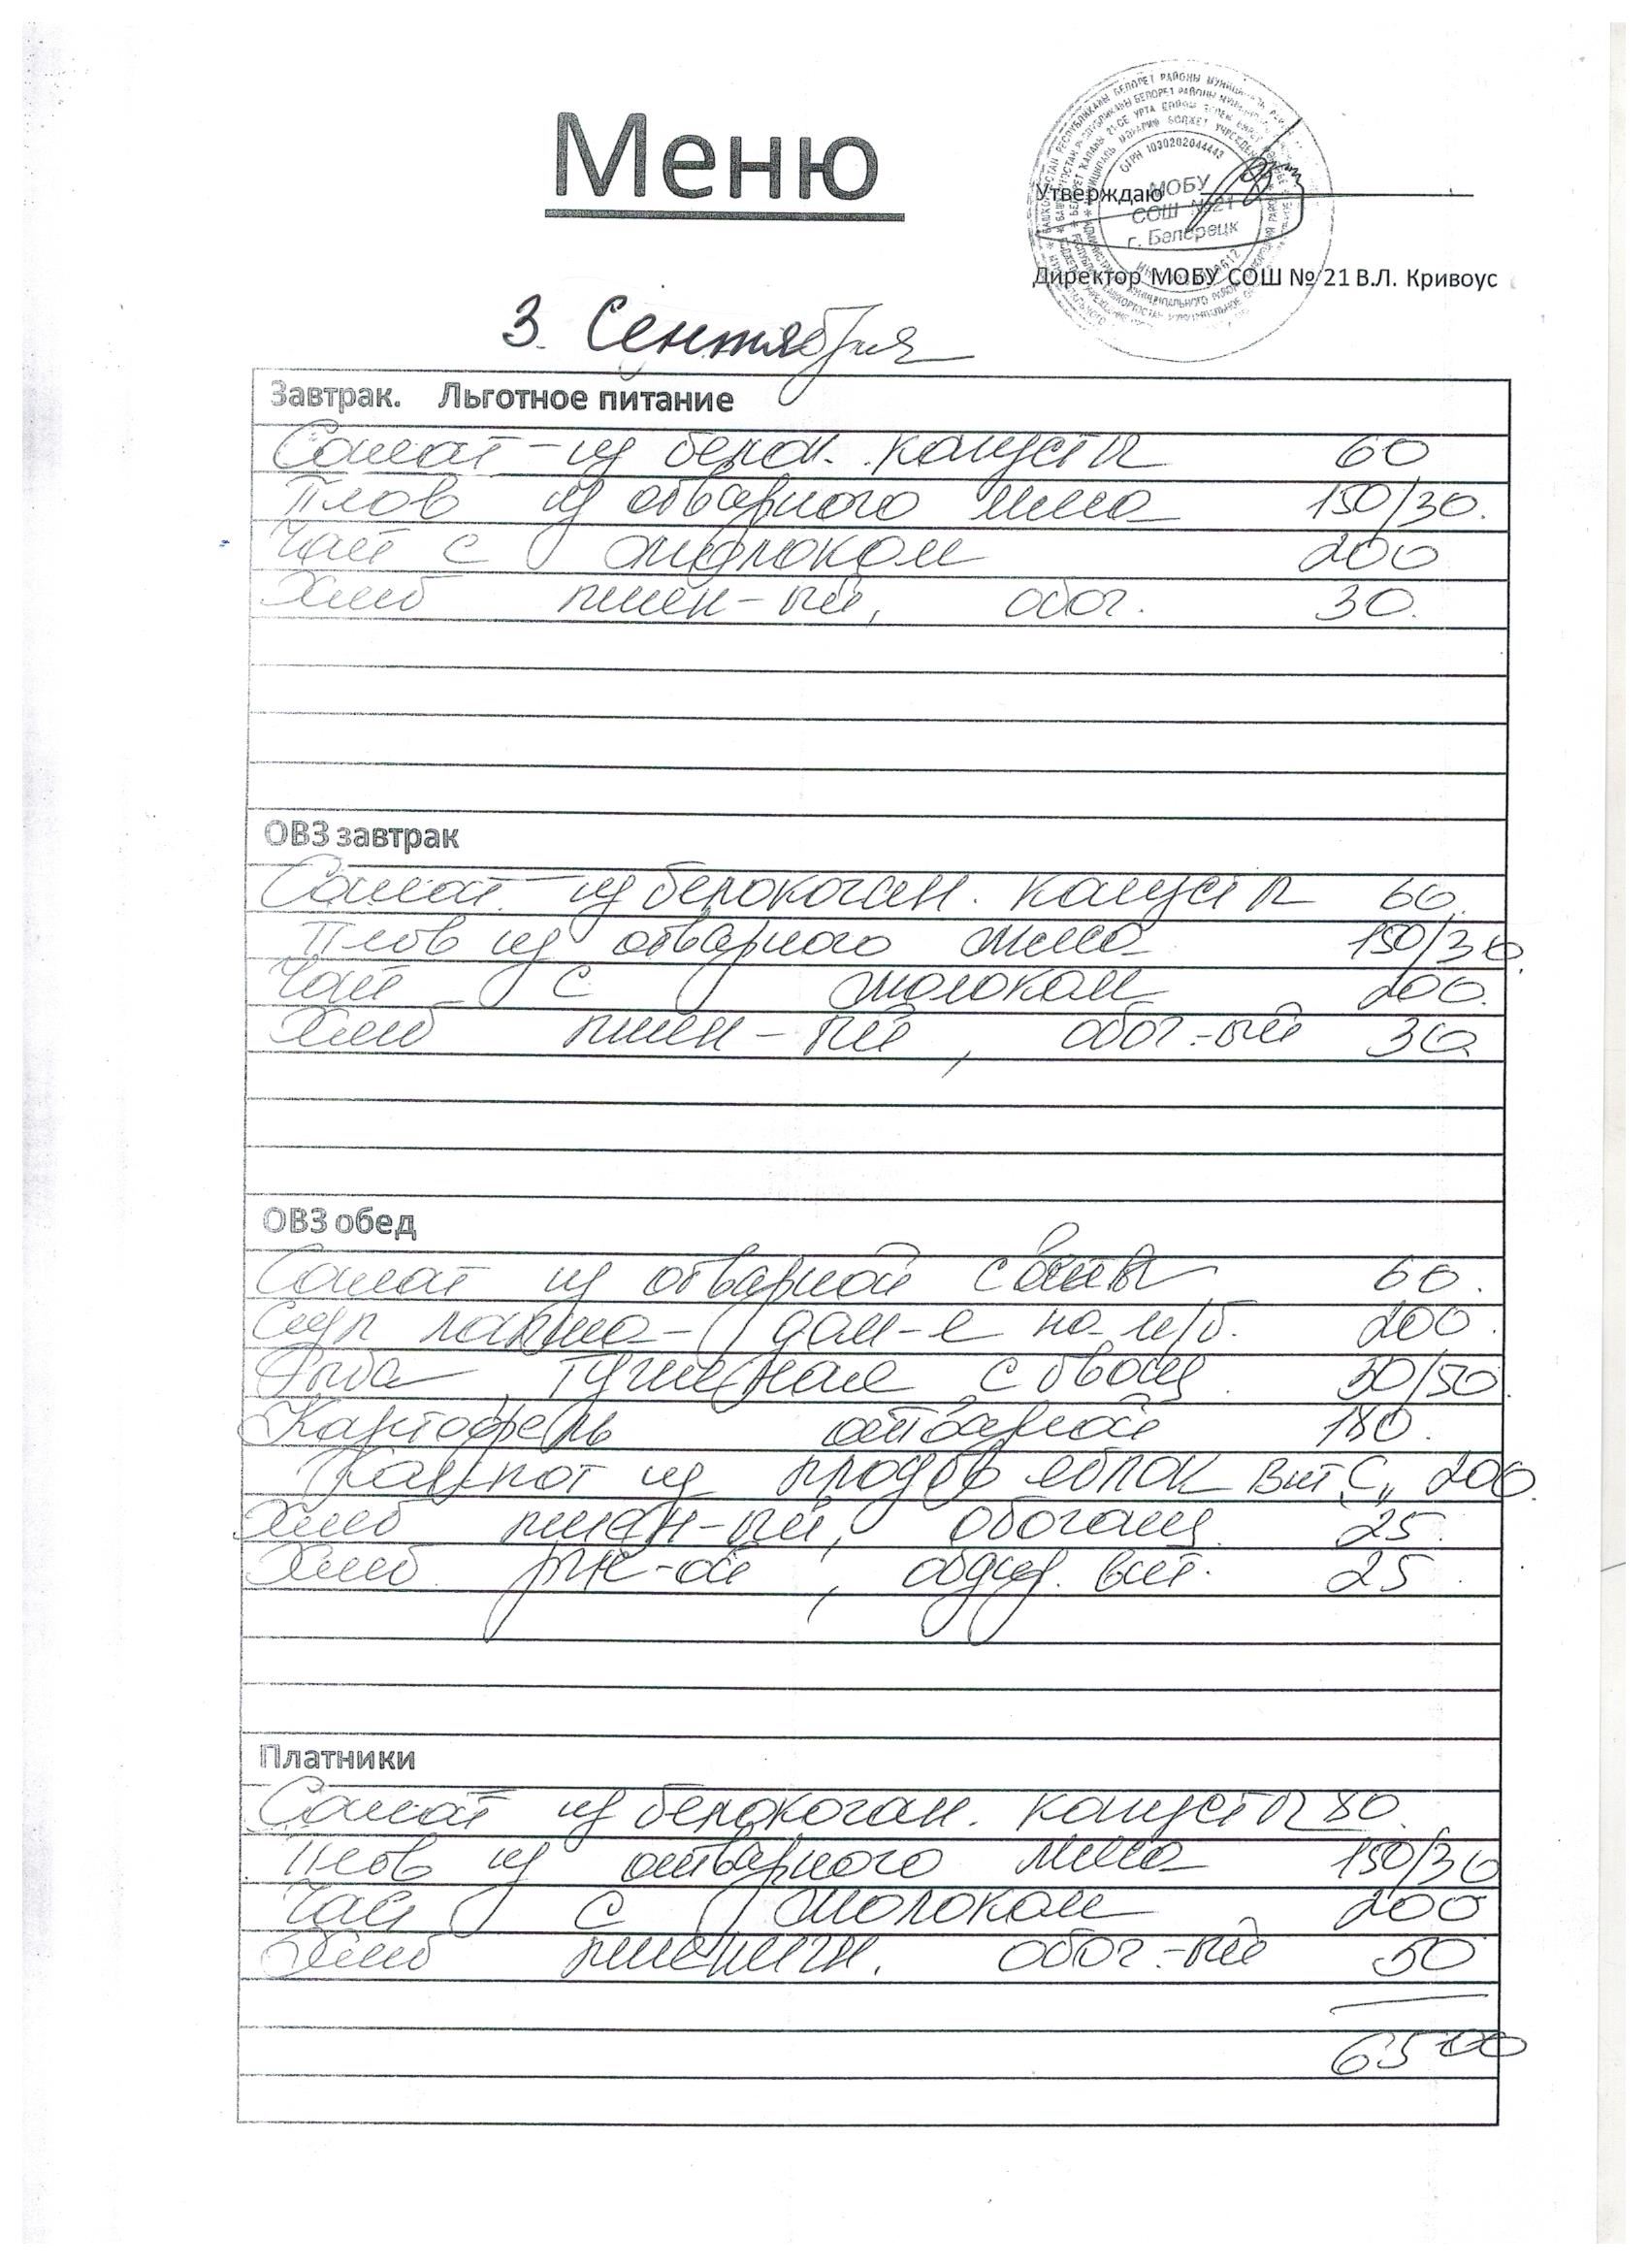 Меню
Утверждаю
МОБУ
СОШ №21
г. Белорецк
ОГРН 1030202044443
Директор МОБУ СОШ № 21 В.Л. Кривоус
3. Сентября
Завтрак. Льготное питание
Салат из белок. капусты 60
Плов из отварного мяса 150/30.
Чай с молоком 200
Хлеб пшен-ый, обог. 30.
ОВЗ завтрак
Салат из белокочан. капусты 60.
Плов из отварного мяса 150/30.
Чай с молоком 200.
Хлеб пшен-ый, обог.-ый 30
ОВЗ обед
Салат из отварной свеклы 60.
Суп лапша- дом-е на м/б. 200.
Рыба тушеная с овощ. 50/50.
Картофель отварной 180.
Компот из плодов яблок вит "С" 200.
Хлеб пшен-ый, обогащ. 25.
Хлеб рж-ой, обдир. вит. 25.
Платники
Салат из белокочан. капусты 80.
Плов из отварного мяса 150/30
Чай с молоком 200
Хлеб пшеничн. обог.-ый 50
65-00